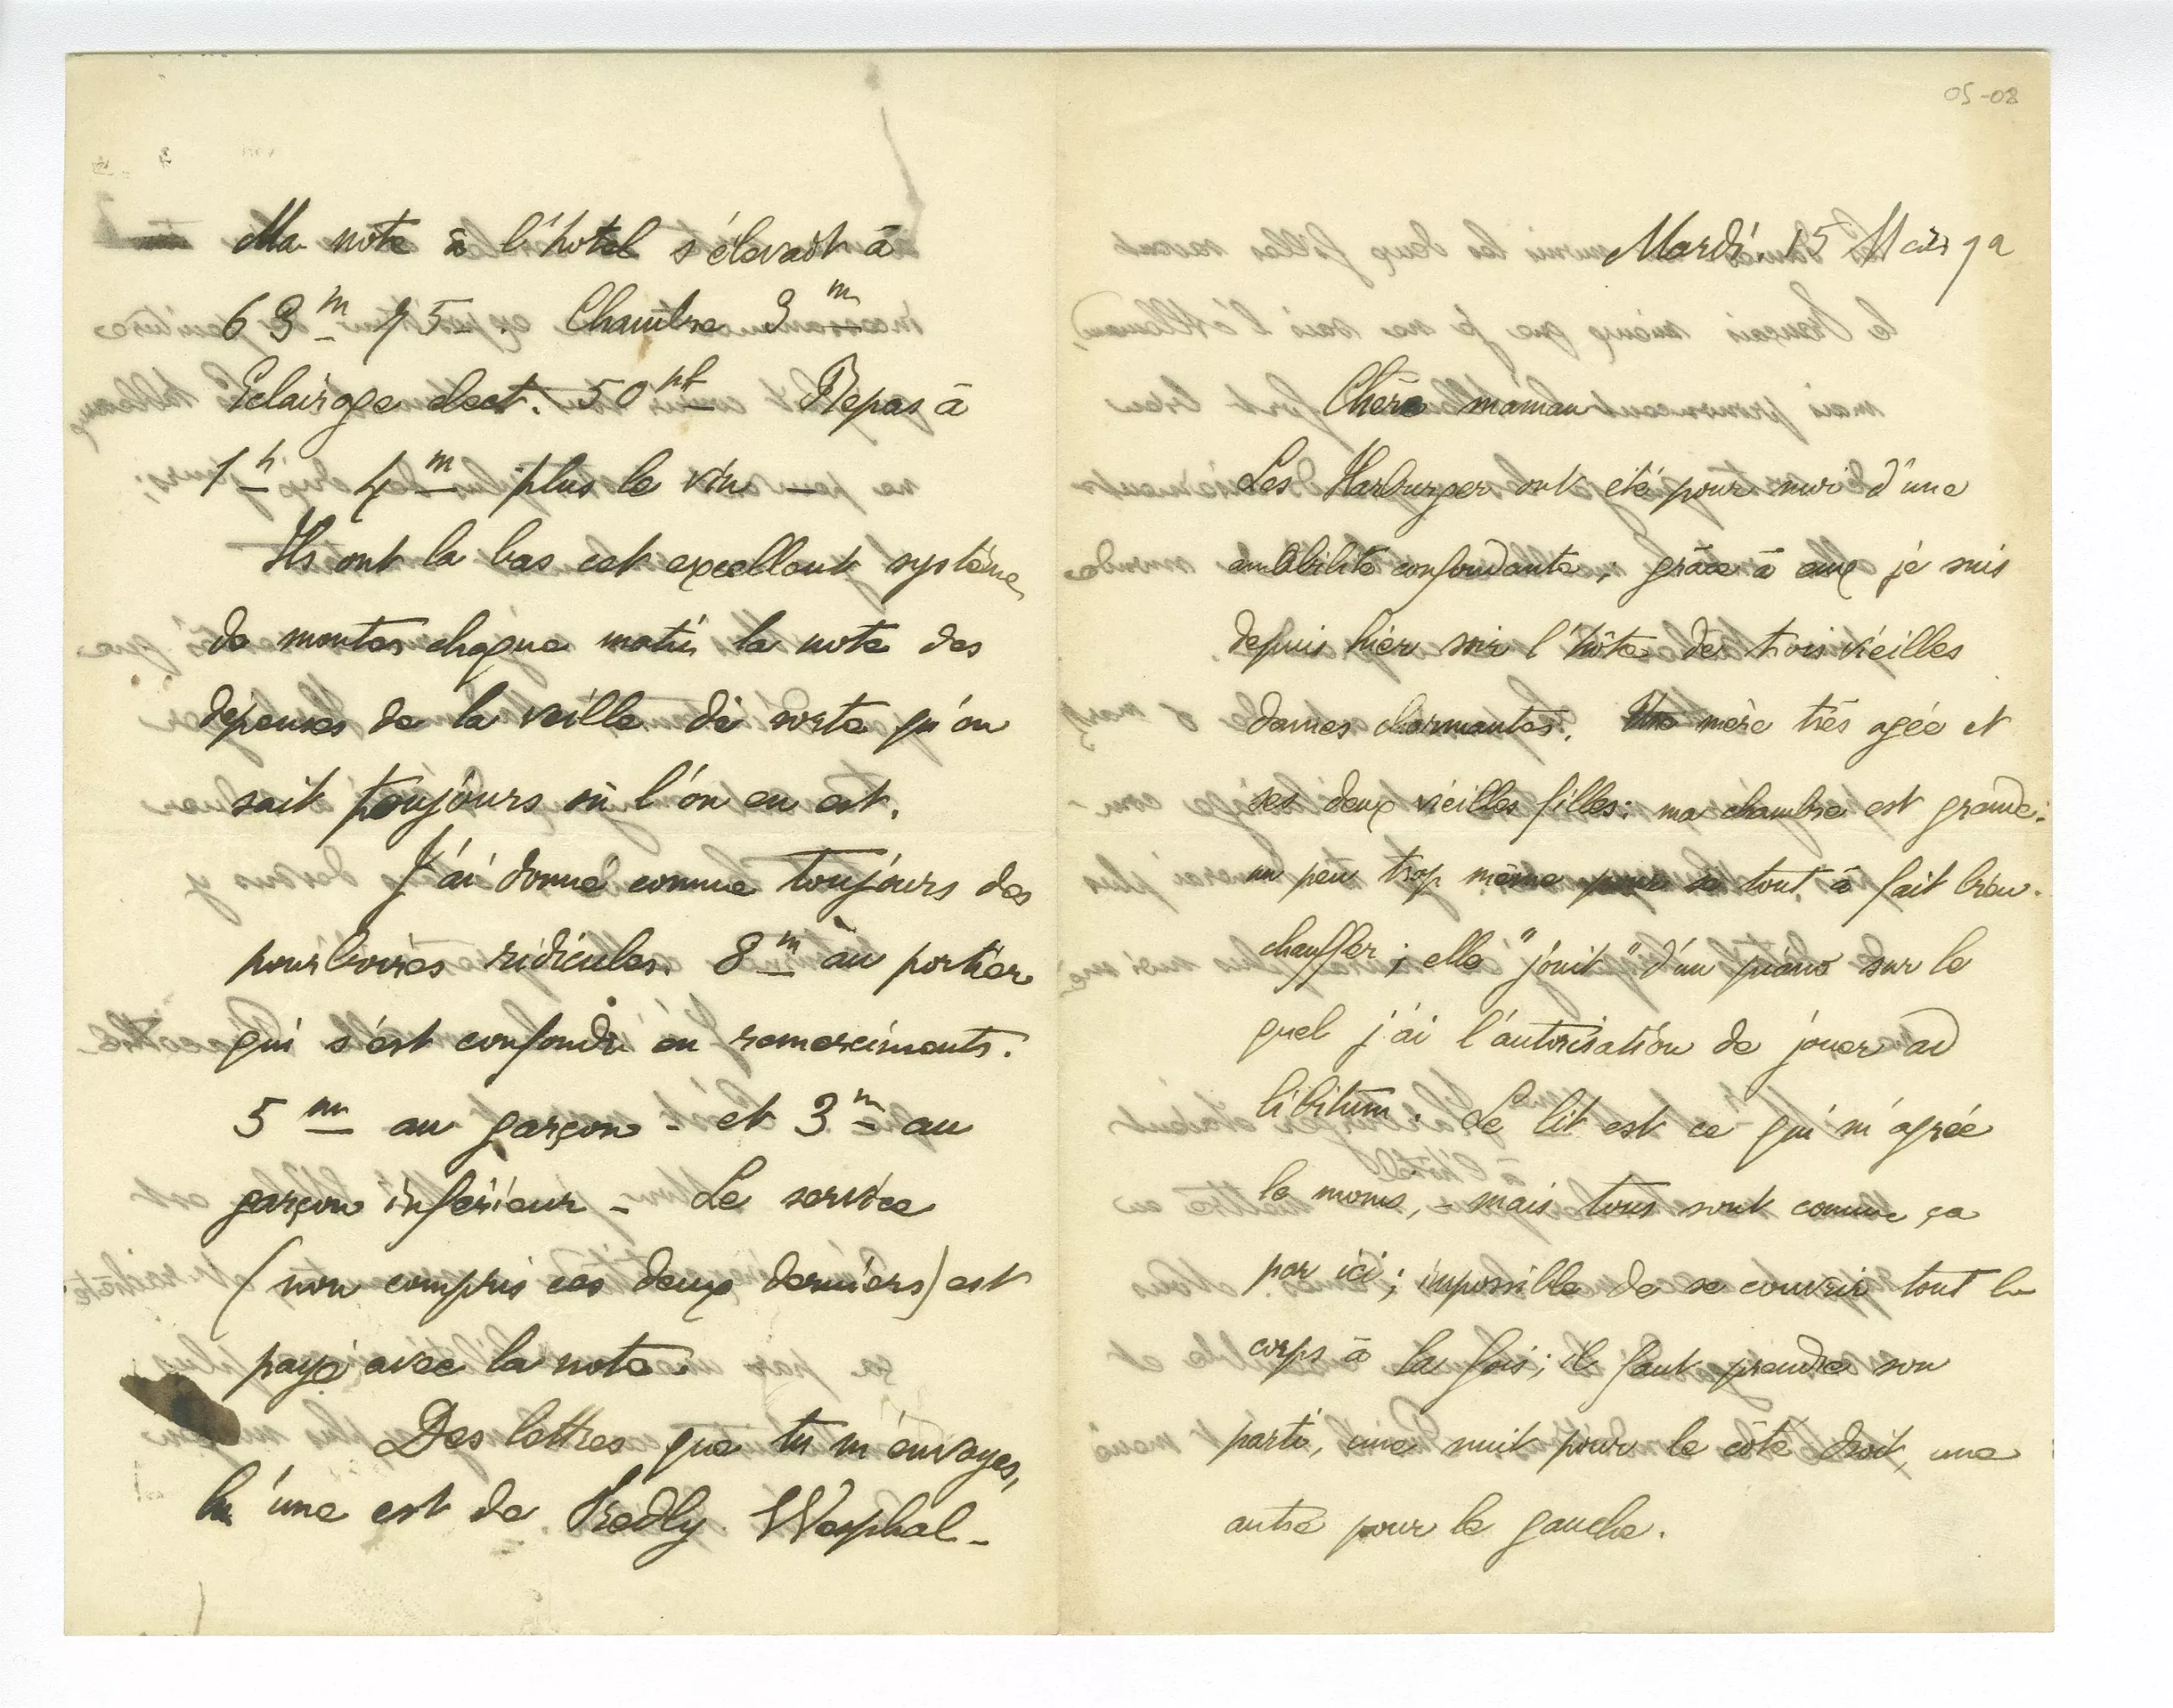 05-08
Mardi 15 Mars 92
Chère maman
Les Harburger ont été pour moi d'une
amabilité confondante ; grâce à eux je suis
depuis hier soir l'hôte de trois vieilles
dames charmantes. Une mère très agée et
ses deux vieilles filles : ma chambre est grande :
un peu trop même pour se tout à fait bien
chauffer ; elle "jouit" d'un piano sur le
quel j'ai l'autorisation de jouer ad
libitum. Le lit est ce qui m'agrée
le moins, - mais tous sont comme ça
par ici ; impossible de se couvrir tout le
corps à la fois ; il faut prendre son
parti, une nuit pour le côté droit, une
autre pour le gauche.
Ma note à l'hotel s'élevait à
63 m 75. Chambre 3 m
Eclairage elect. 50 pf Repas à
1 h 4 m plus le vin -
Ils ont la bas cet excellent système
de monter chaque matin la note des
dépenses de la veille de sorte qu'on
sait toujours où l'on en est.
J'ai donné comme toujours des
pourboires ridicules. 8 m au portier
qui s'est confondu en remerciments.
5 m au garçon - et 3 m au
garçon inférieur - Le service
(non compris ces deux derniers) est
payé avec la note.
Des lettres que tu m'envoyes,
l'une est de Fredly Wesphal -